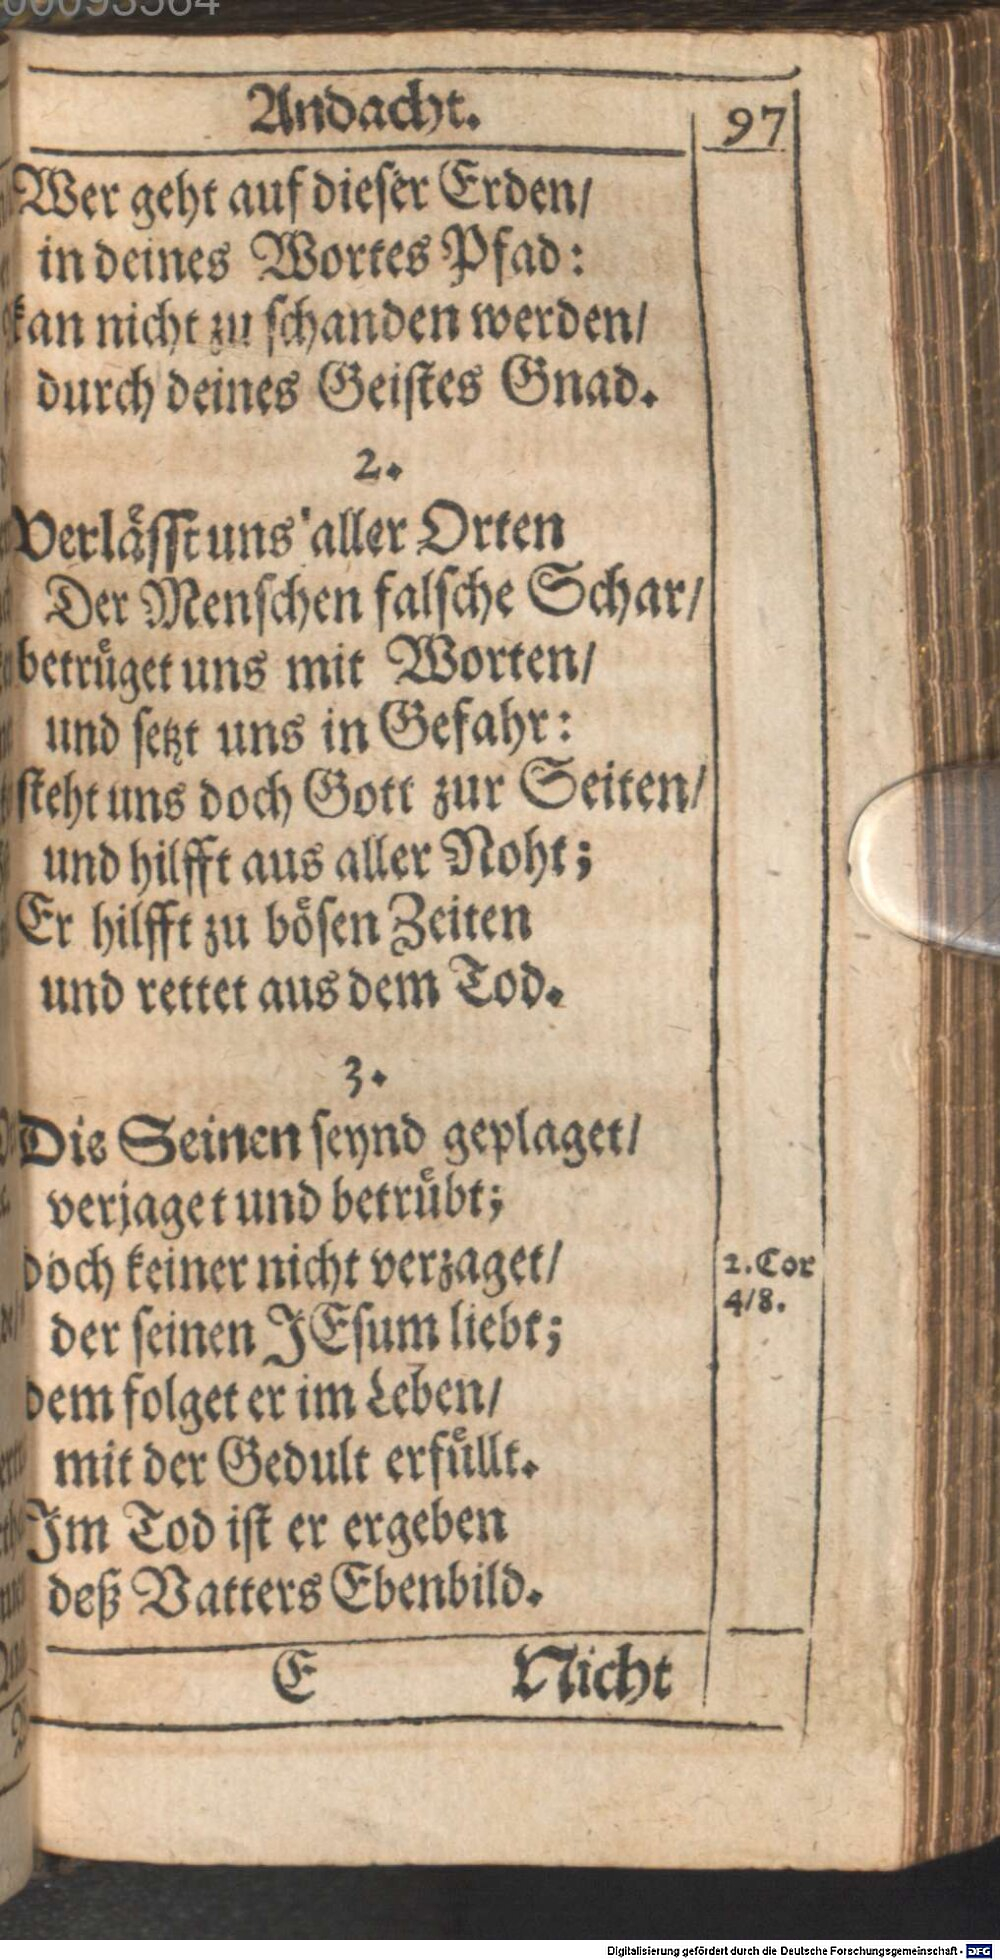 Andacht. 97
Wer geht auf dieſer Erden/
in deines Wortes Pfad:
kan nicht zu ſchanden werden/
durch deines Geiſtes Gnad.
2.
Verlaͤſſt uns aller Orten
Der Menſchen falſche Schar/
betruͤget uns mit Worten/
und ſetzt uns in Gefahr:
ſteht uns doch Gott zur Seiten/
und hilfft aus aller Noht;
Er hilfft zu boͤſen Zeiten
und rettet aus dem Tod.
3.
Die Seinen ſeynd geplaget/
verjaget und betruͤbt;
doch keiner nicht verzaget/
2. Cor
4/8.
der ſeinen JEſum liebt;
dem folget er im Leben/
mit der Gedult erfuͤllt.
Im Tod iſt er ergeben
deß Vatters Ebenbild.
E Nicht
Digitalisierung gefördert durch die Deutsche Forschungsgemeinschaft - DFG